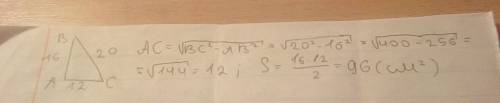 B
16
20
A
12
C
AC = √BC²-AB² = √20²-16² = √400-256 =
= √144 = 12 ; S = 16·12/2 = 96 (см²)